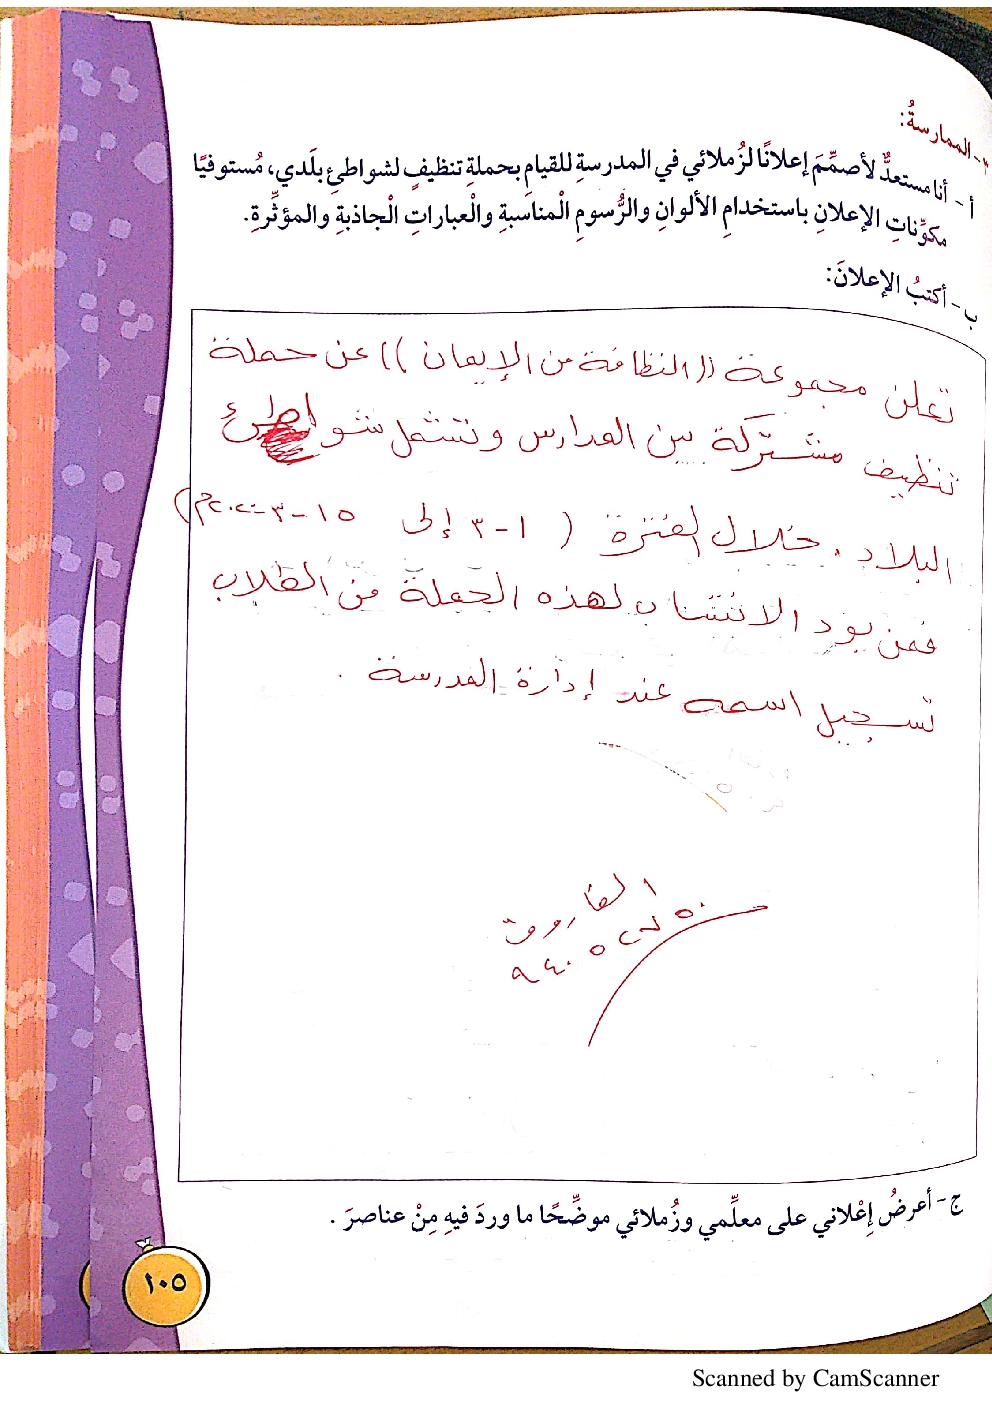 ٣- الممارسةُ:
أ- أنا مستعدٌّ لأصمِّمَ إعلانًا لزُملائي في المدرسةِ للقيامِ بحملةِ تنظيفٍ لشواطئِ بلَدي، مُستوفيًا
مكوِّناتِ الإعلانِ باستخدامِ الألوانِ والرُّسومِ الْمناسَبةِ والْعباراتِ الْجاذبةِ والمؤثِّرةِ.
ب- أكتبُ الإعلانَ:
تعلن مجموعة ((النظافة من الإيمان)) عن حملة
تنظيف مشتركة بين المدارس وتشمل شواطئ
البلاد . خلال الفترة ( ١-٣ إلى ١٥-٣-٢٠٢٠م)
فمن يود الانتساب لهذه الحملة من الطلاب
تسجيل اسمه عند إدارة المدرسة .
الفاروق
ج- أعرضُ إعْلاني على معلِّمي وزُملائي موضِّحًا ما وردَ فيهِ مِنْ عناصرَ .
١٠٥
Scanned by CamScanner